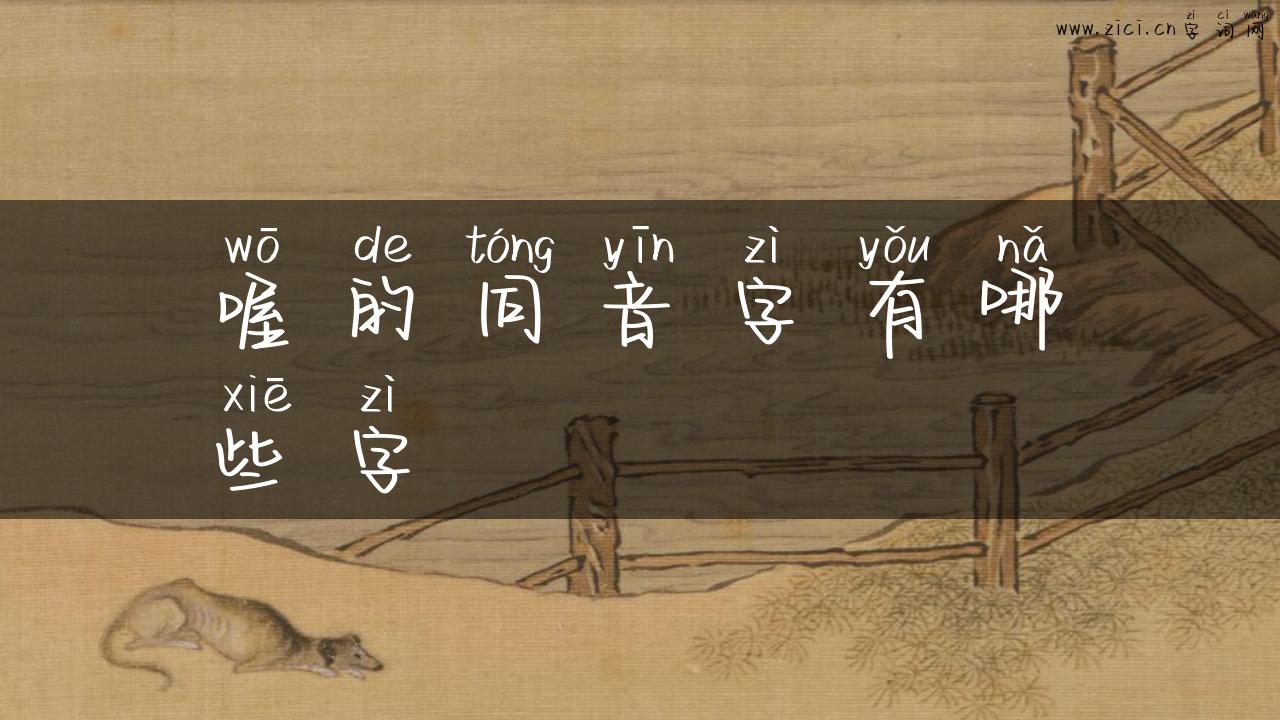 zì cí wǎng
www.zici.cn 字词网
wō de tóng yīn zì yǒu nǎ
喔的同音字有哪
xiē zì
些字